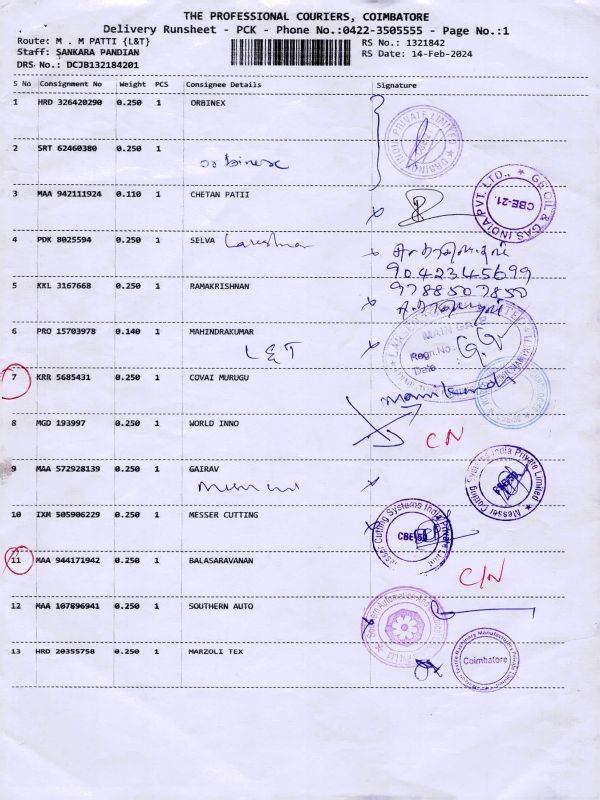 THE PROFESSIONAL COURIERS, COIMBATORE
Delivery Runsheet - PCK - Phone No.:0422-3505555 - Page No.:1
Route: M . M PATTI {L&T}
RS No.: 1321842
Staff: SANKARA PANDIAN
RS Date: 14-Feb-2024
DRS No.: DCJB132184201
S No Consignment No Weight PCS Consignee Details Signature
1 HRD 326420290 0.250 1 ORBINEX
2 SRT 62460380 0.250 1
orbinexe
3 MAA 942111924 0.110 1 CHETAN PATII
GE OIL & GAS INDIA PVT. LTD.,
CBE-21.
4 PDK 8025594 0.250 1 SELVA
9042345699
5 KKL 3167668 0.250 1 RAMAKRISHNAN
9788507850
6 PRO 15703978 0.140 1 MAHINDRAKUMAR
L&T
MAIN GATE
Regn.No
Date
7 KRR 5685431 0.250 1 COVAI MURUGU
8 MGD 193997 0.250 1 WORLD INNO
CN
9 MAA 572928139 0.250 1 GAIRAV
Messer Cutting Systems India Private Limited
10 IXM 505906229 0.250 1 MESSER CUTTING
Cutting Systems India Private Limi
CBE
11 MAA 944171942 0.250 1 BALASARAVANAN
C/N
12 MAA 107896941 0.250 1 SOUTHERN AUTO
13 HRD 20355758 0.250 1 MARZOLI TEX
Coimbatore